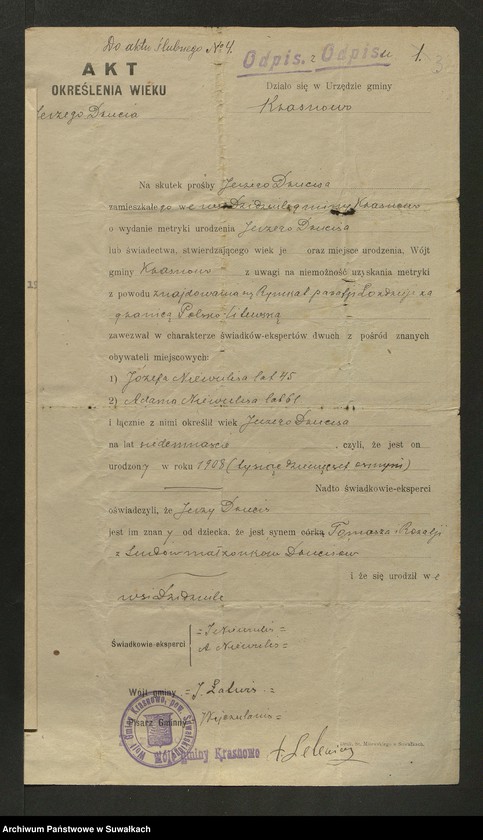 Do aktu ślubnego № 4.
Odpis z Odpisu 1.
AKT
OKREŚLENIA WIEKU
Jerzego Dzucia
Działo się w Urzędzie gminy
Krasnowo
Na skutek prośby Jerzego Dzucisa
zamieszkałego we wsi gminy Krasnowo
o wydanie metryki urodzenia Jerzego Dzucisa
lub świadectwa, stwierdzającego wiek je oraz miejsce urodzenia. Wójt
gminy Krasnowo z uwagi na niemożność uzyskania metryki
z powodu znajdowania się parafji Łoździeje za
granicą Polsko-Litewską
zawezwał w charakterze świadków-ekspertów dwuch z pośród znanych
obywateli miejscowych:
1) Józefa Niewulisa lat 45
2) Adama Niewulisa lat 61
i łącznie z nimi określił wiek Jerzego Dzucisa
na lat siedemnaście , czyli, że jest on
urodzony w roku 1908 (tysiąc dziewięćset ósmym)
Nadto świadkowie-eksperci
oświadczyli, że Jerzy Dzucis
jest im znany od dziecka. że jest synem córką Tomasza i Rozalji
z małżonków Dzucisów
i że się urodził we
wsi
Świadkowie-eksperci
= J. Niewulis =
= A. Niewulis =
Wójt gminy = J. =
Pisarz Gminny =
Wójt Gminy Krasnowo, pow. Suwalskiego
Wójt gminy Krasnowo
w Suwałkach.
Archiwum Państwowe w Suwałkach